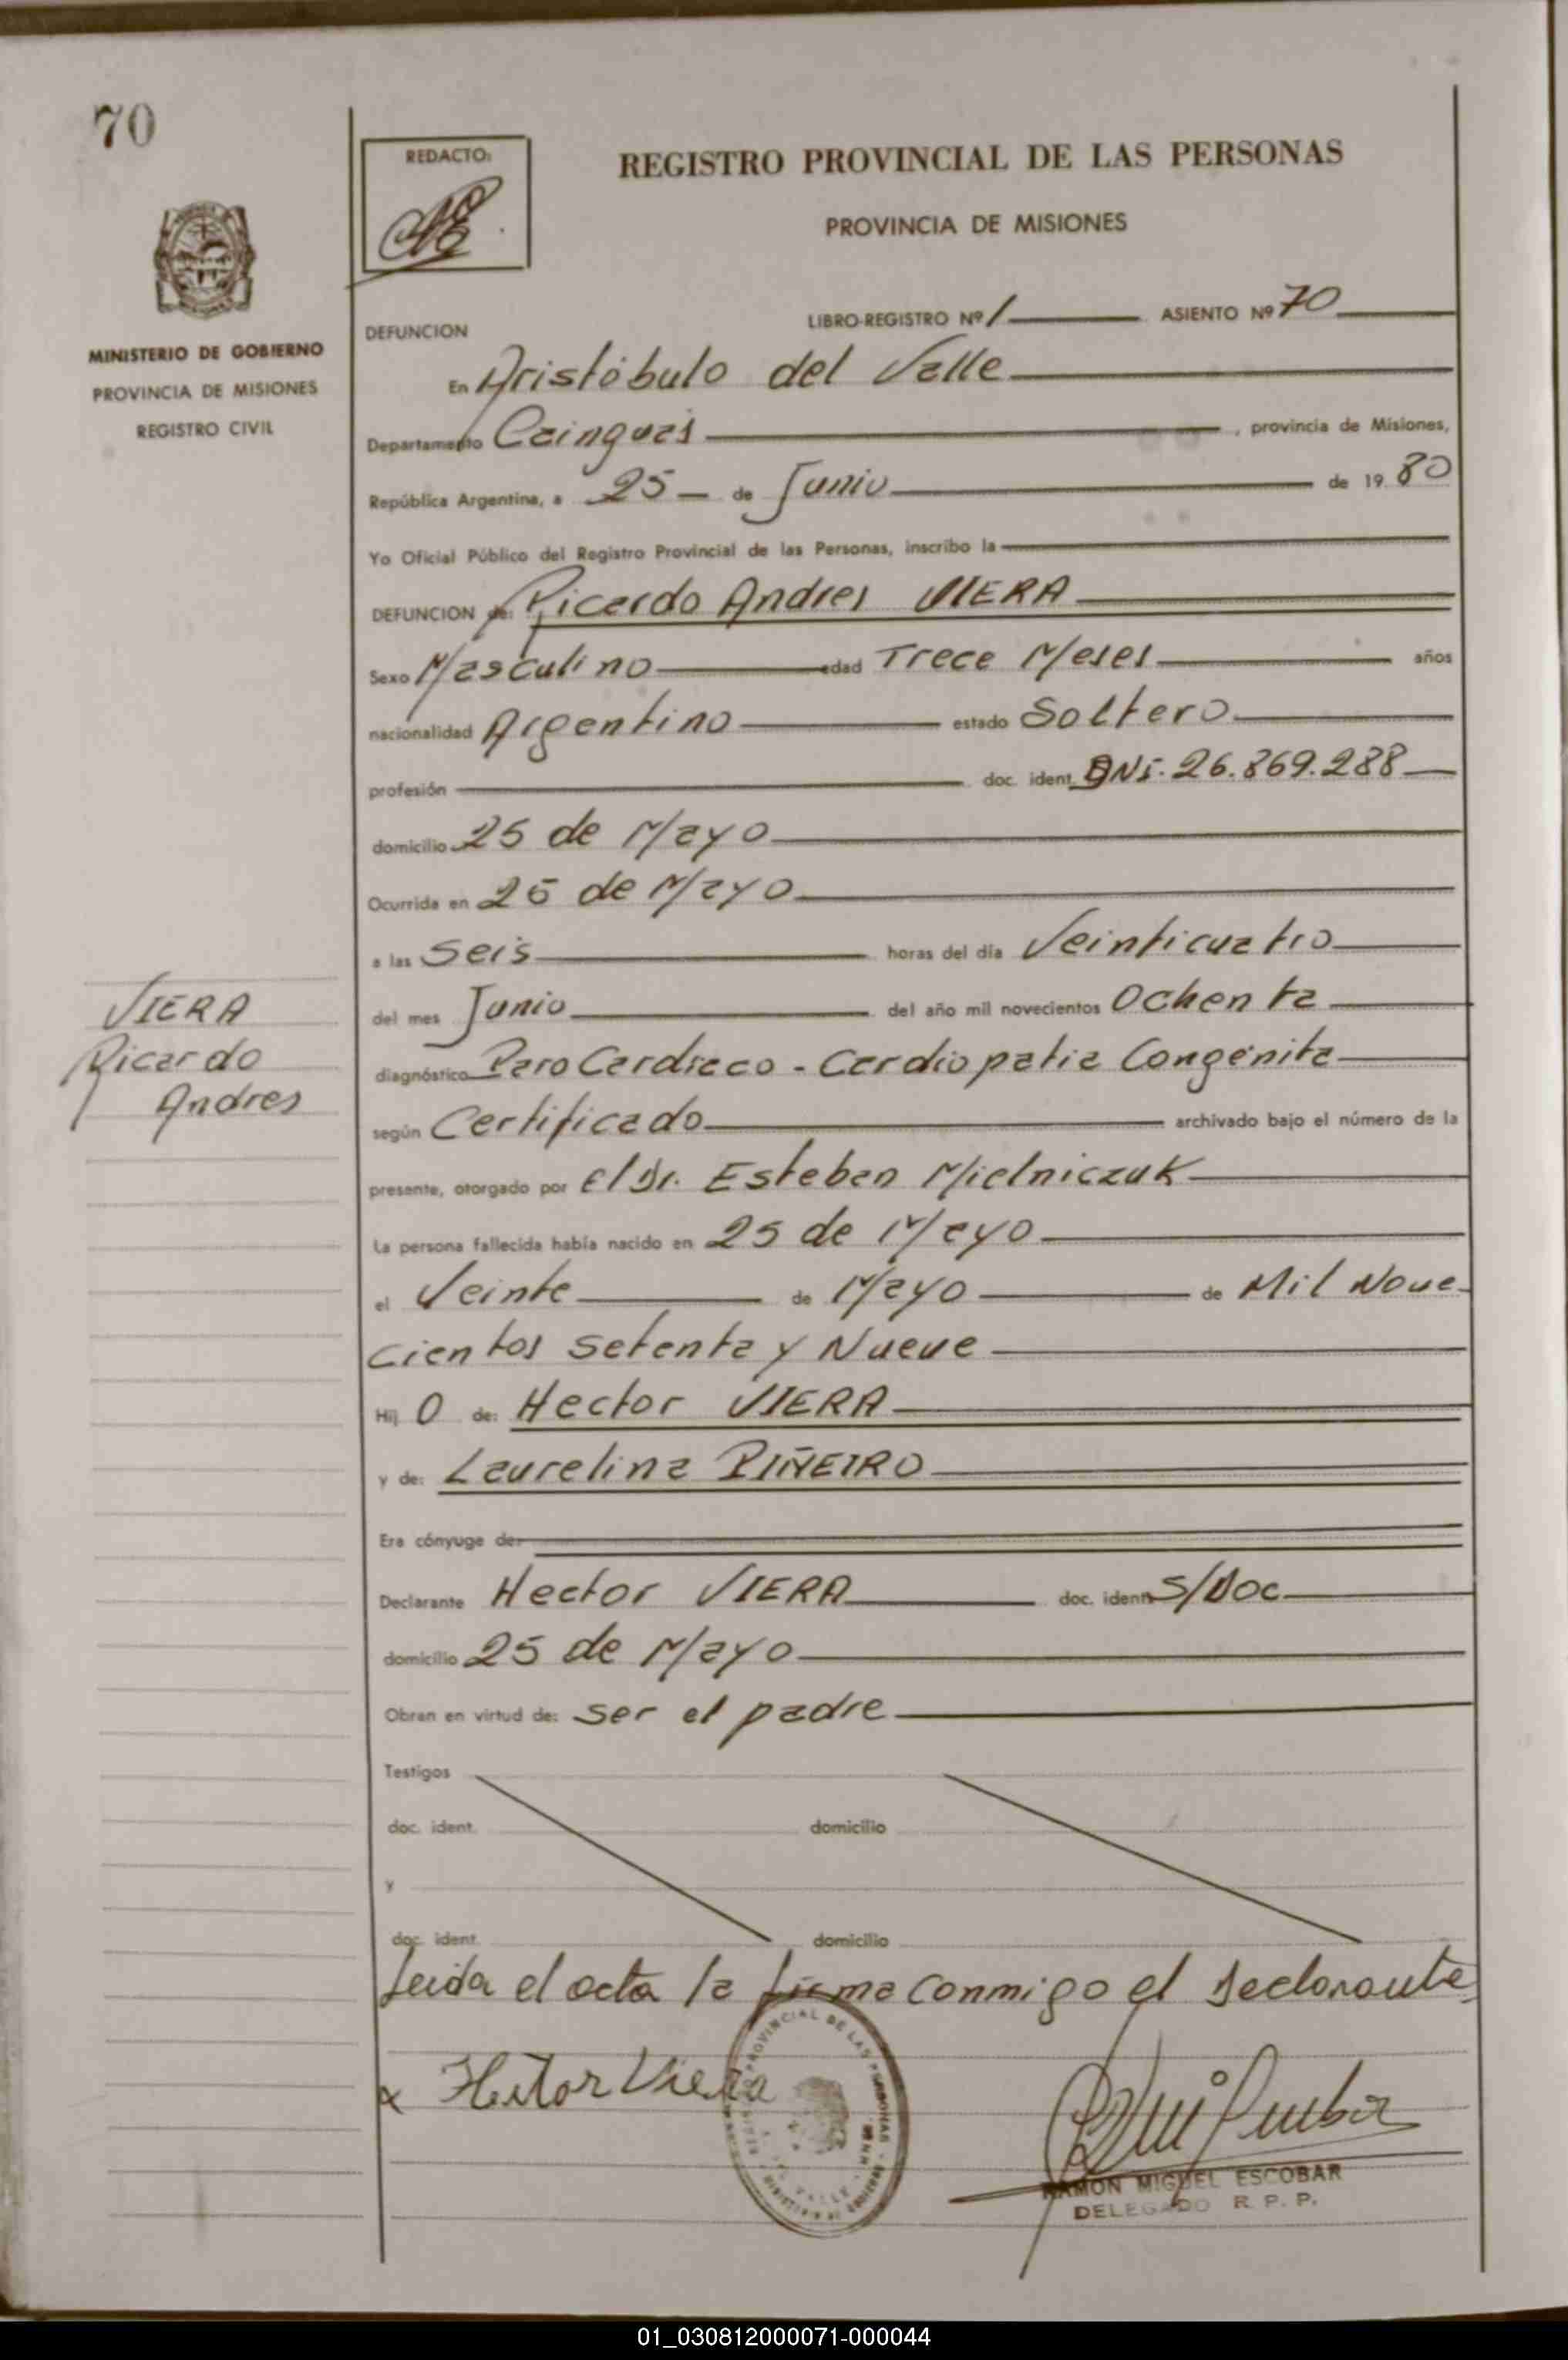 70
REDACTO:
REGISTRO PROVINCIAL DE LAS PERSONAS
PROVINCIA DE MISIONES
MINISTERIO DE GOBIERNO
PROVINCIA DE MISIONES
REGISTRO CIVIL
LIBRO-REGISTRO Nº 1 ASIENTO Nº 70
DEFUNCION
En Aristóbulo del Valle
Departamento Cainguás, provincia de Misiones,
República Argentina, a 25 de Junio de 19 80
Yo Oficial Público del Registro Provincial de las Personas, inscribo la
DEFUNCION de: Ricardo Andres VIERA
Sexo Masculino edad Trece Meses años
nacionalidad Argentino estado Soltero
profesión doc. ident. DNI. 26.869.288
domicilio 25 de Mayo
Ocurrida en 25 de Mayo
a las Seis horas del día Veinticuatro
del mes Junio del año mil novecientos Ochenta
diagnóstico Paro Cardiaco - Cardiopatia Congénita
según Certificado archivado bajo el número de la
presente, otorgado por el Dr. Esteban Mielniczuk
La persona fallecida había nacido en 25 de Mayo
el Veinte de Mayo de Mil Nove-
cientos Setenta y Nueve
Hij o de: Hector VIERA
y de: Laurelina PIÑEIRO
Era cónyuge de:
Declarante Hector VIERA doc. ident. S/Doc
domicilio 25 de Mayo
Obran en virtud de: ser el padre
Testigos
doc. ident. domicilio
y
doc. ident. domicilio
Leida el acta la firma conmigo el declarante
x Hector Viera
RAMON MIGUEL ESCOBAR
DELEGADO R. P. P.
VIERA
Ricardo
Andres
01_030812000071-000044